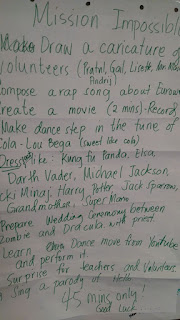 Mission Impossible
Make Draw a caricature of
volunteers (Prathil, Gail, Liseth, Ian,
Compose a rap song about Europe
Create a movie (2 mins) - Record
Make dance step in the tune of
Cola - Lou Bega (Sweet like cola)
Dress like: Kung fu Panda, Elsa,
Darth Vader, Michael Jackson,
Nicki Minaj, Harry Potter, Jack Sparrow,
Grandmother, Super Mario
Prepare Wedding Ceremony between
Zombie and Dracula with priest.
Learn Dance move from Youtube
and perform it.
Surprise for teachers and Volunteers.
Sing a parody of Hello
45 mins only!
Good Luck